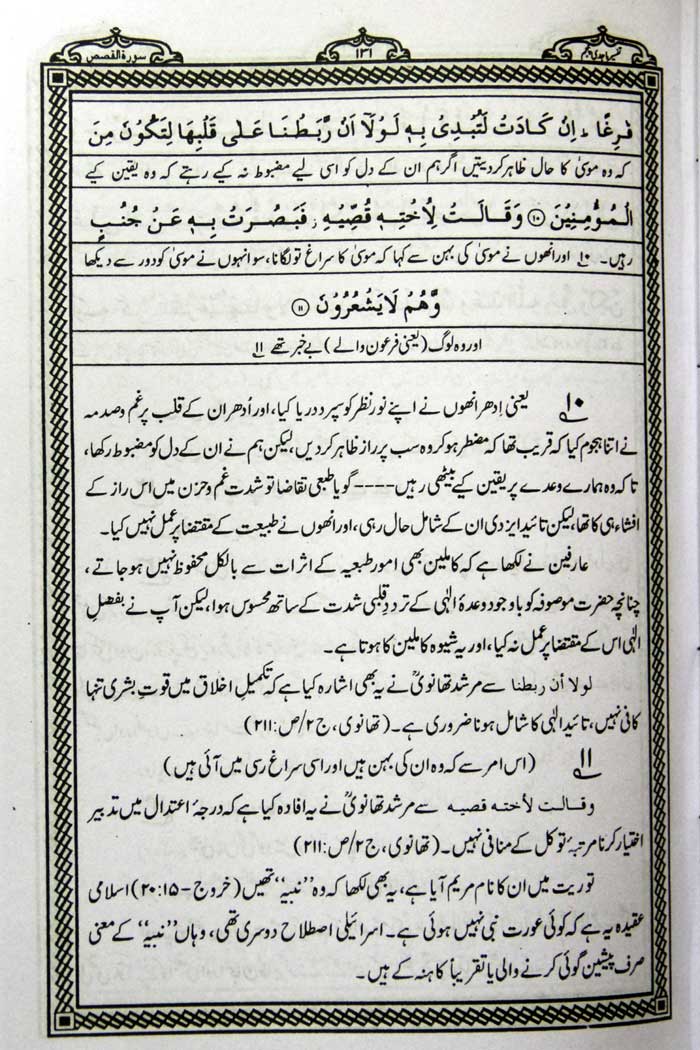 تفسیر ماجدی پنجم
۱۳۱
سورة القصص
فٰرِغًا ؕ اِنْ كَادَتْ لَتُبْدِیْ بِهٖ لَوْلَاۤ اَنْ رَّبَطْنَا عَلٰی قَلْبِهَا لِتَكُوْنَ مِنَ
کہ وہ موسیٰ کا حال ظاہر کردیتیں اگر ہم ان کے دل کو اسی لیے مضبوط نہ کیے رہتے کہ وہ یقین کیے
الْمُؤْمِنِیْنَ ﴿۱۰﴾ وَقَالَتْ لِاُخْتِهٖ قُصِّیْهِ ؗ فَبَصُرَتْ بِهٖ عَنْ جُنُبٍ
رہیں۔ ۱۰ اور انھوں نے موسیٰ کی بہن سے کہا کہ موسیٰ کا سراغ تو لگانا، سو انہوں نے موسیٰ کو دور سے دیکھا
وَّهُمْ لَا یَشْعُرُوْنَ ﴿۱۱﴾
اور وہ لوگ (یعنی فرعون والے) بے خبر تھے ۱۱
۱۰ یعنی اِدھر انھوں نے اپنے نورِ نظر کو سپرد دریا کیا، اور اُدھر ان کے قلب پر غم و صدمہ
نے اتنا ہجوم کیا کہ قریب تھا کہ مضطر ہو کر وہ سب پر راز ظاہر کردیں، لیکن ہم نے ان کے دل کو مضبوط رکھا،
تا کہ وہ ہمارے وعدے پر یقین کیے بیٹھی رہیں ---- گویا طبعی تقاضا تو شدت غم و حزن میں اس راز کے
افشاء ہی کا تھا، لیکن تائید ایزدی ان کے شامل حال رہی، اور انھوں نے طبیعت کے مقتضا پر عمل نہیں کیا۔
عارفین نے لکھا ہے کہ کاملین بھی امور طبعیہ کے اثرات سے بالکل محفوظ نہیں ہو جاتے،
چنانچہ حضرت موصوفہ کو باوجود وعدۂ الٰہی کے تردد قلبی شدت کے ساتھ محسوس ہوا، لیکن آپ نے بفضلِ
الٰہی اس کے مقتضا پر عمل نہ کیا، اور یہ شیوہ کاملین کا ہوتا ہے۔
لولا أن ربطنا سے مرشد تھانویؒ نے یہ بھی اشارہ کیا ہے کہ تکمیلِ اخلاق میں قوتِ بشری تنہا
کافی نہیں، تائید الٰہی کا شامل ہونا ضروری ہے۔ (تھانوی، ج۲/ص:۲۱۱)
۱۱ (اس امر سے کہ وہ ان کی بہن ہیں اور اسی سراغ رسی میں آئی ہیں)
وقالت لأخته قصیه سے مرشد تھانویؒ نے یہ افادہ کیا ہے کہ درجۂ اعتدال میں تدبیر
اختیار کرنا مرتبۂ توکل کے منافی نہیں۔ (تھانوی، ج۲/ص:۲۱۱)
توریت میں ان کا نام مریم آیا ہے، یہ بھی لکھا کہ وہ ’’نبیہ‘‘ تھیں (خروج - ۲۰:۱۵) اسلامی
عقیدہ یہ ہے کہ کوئی عورت نبی نہیں ہوئی ہے۔ اسرائیلی اصطلاح دوسری تھی، وہاں ’’نبیہ‘‘ کے معنی
صرف پیشین گوئی کرنے والی یا تقریباً کاہنہ کے ہیں۔